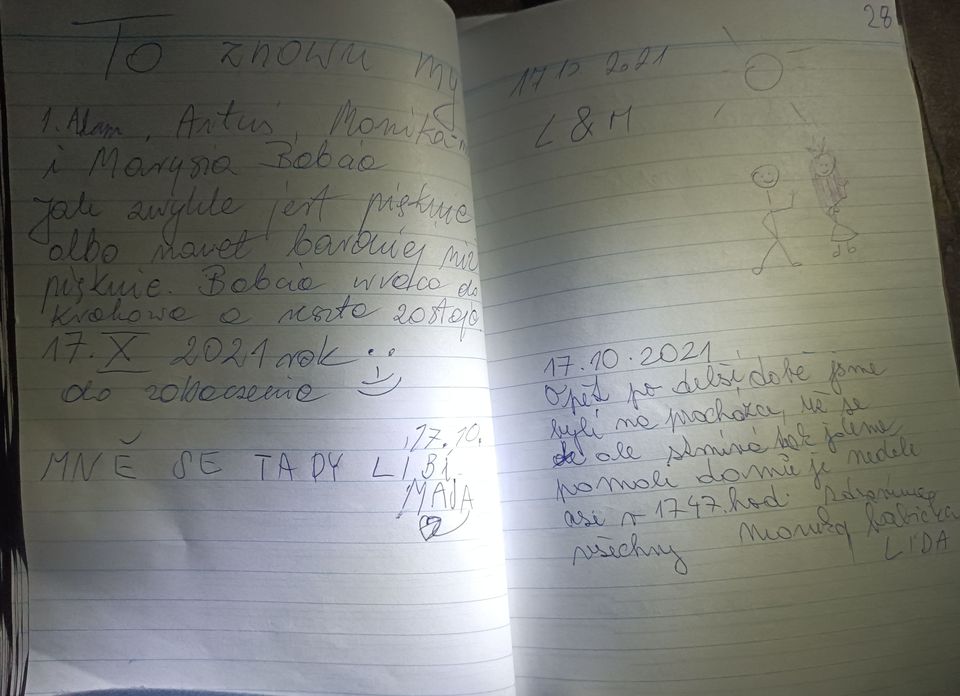 To znowu my
1. Adam, Artuś, Monika
i Marysia Babcia
jak zwykle jest pięknie
albo nawet bardziej niż
pięknie. Babcia wraca do
Krakowa a reszta zostaje
17. X 2021 rok
do zobaczenia
17.10.
MNĚ SE TADY LÍBÍ
MAJA
28
17 10 2021
L & M
17.10.2021
Opět po delší době jsme
byli na procházce, už se
ale stmívá tak jdeme
pomalu domů je neděle
asi v 1747.hod. Zdravíme
všechny babička
LÍDA